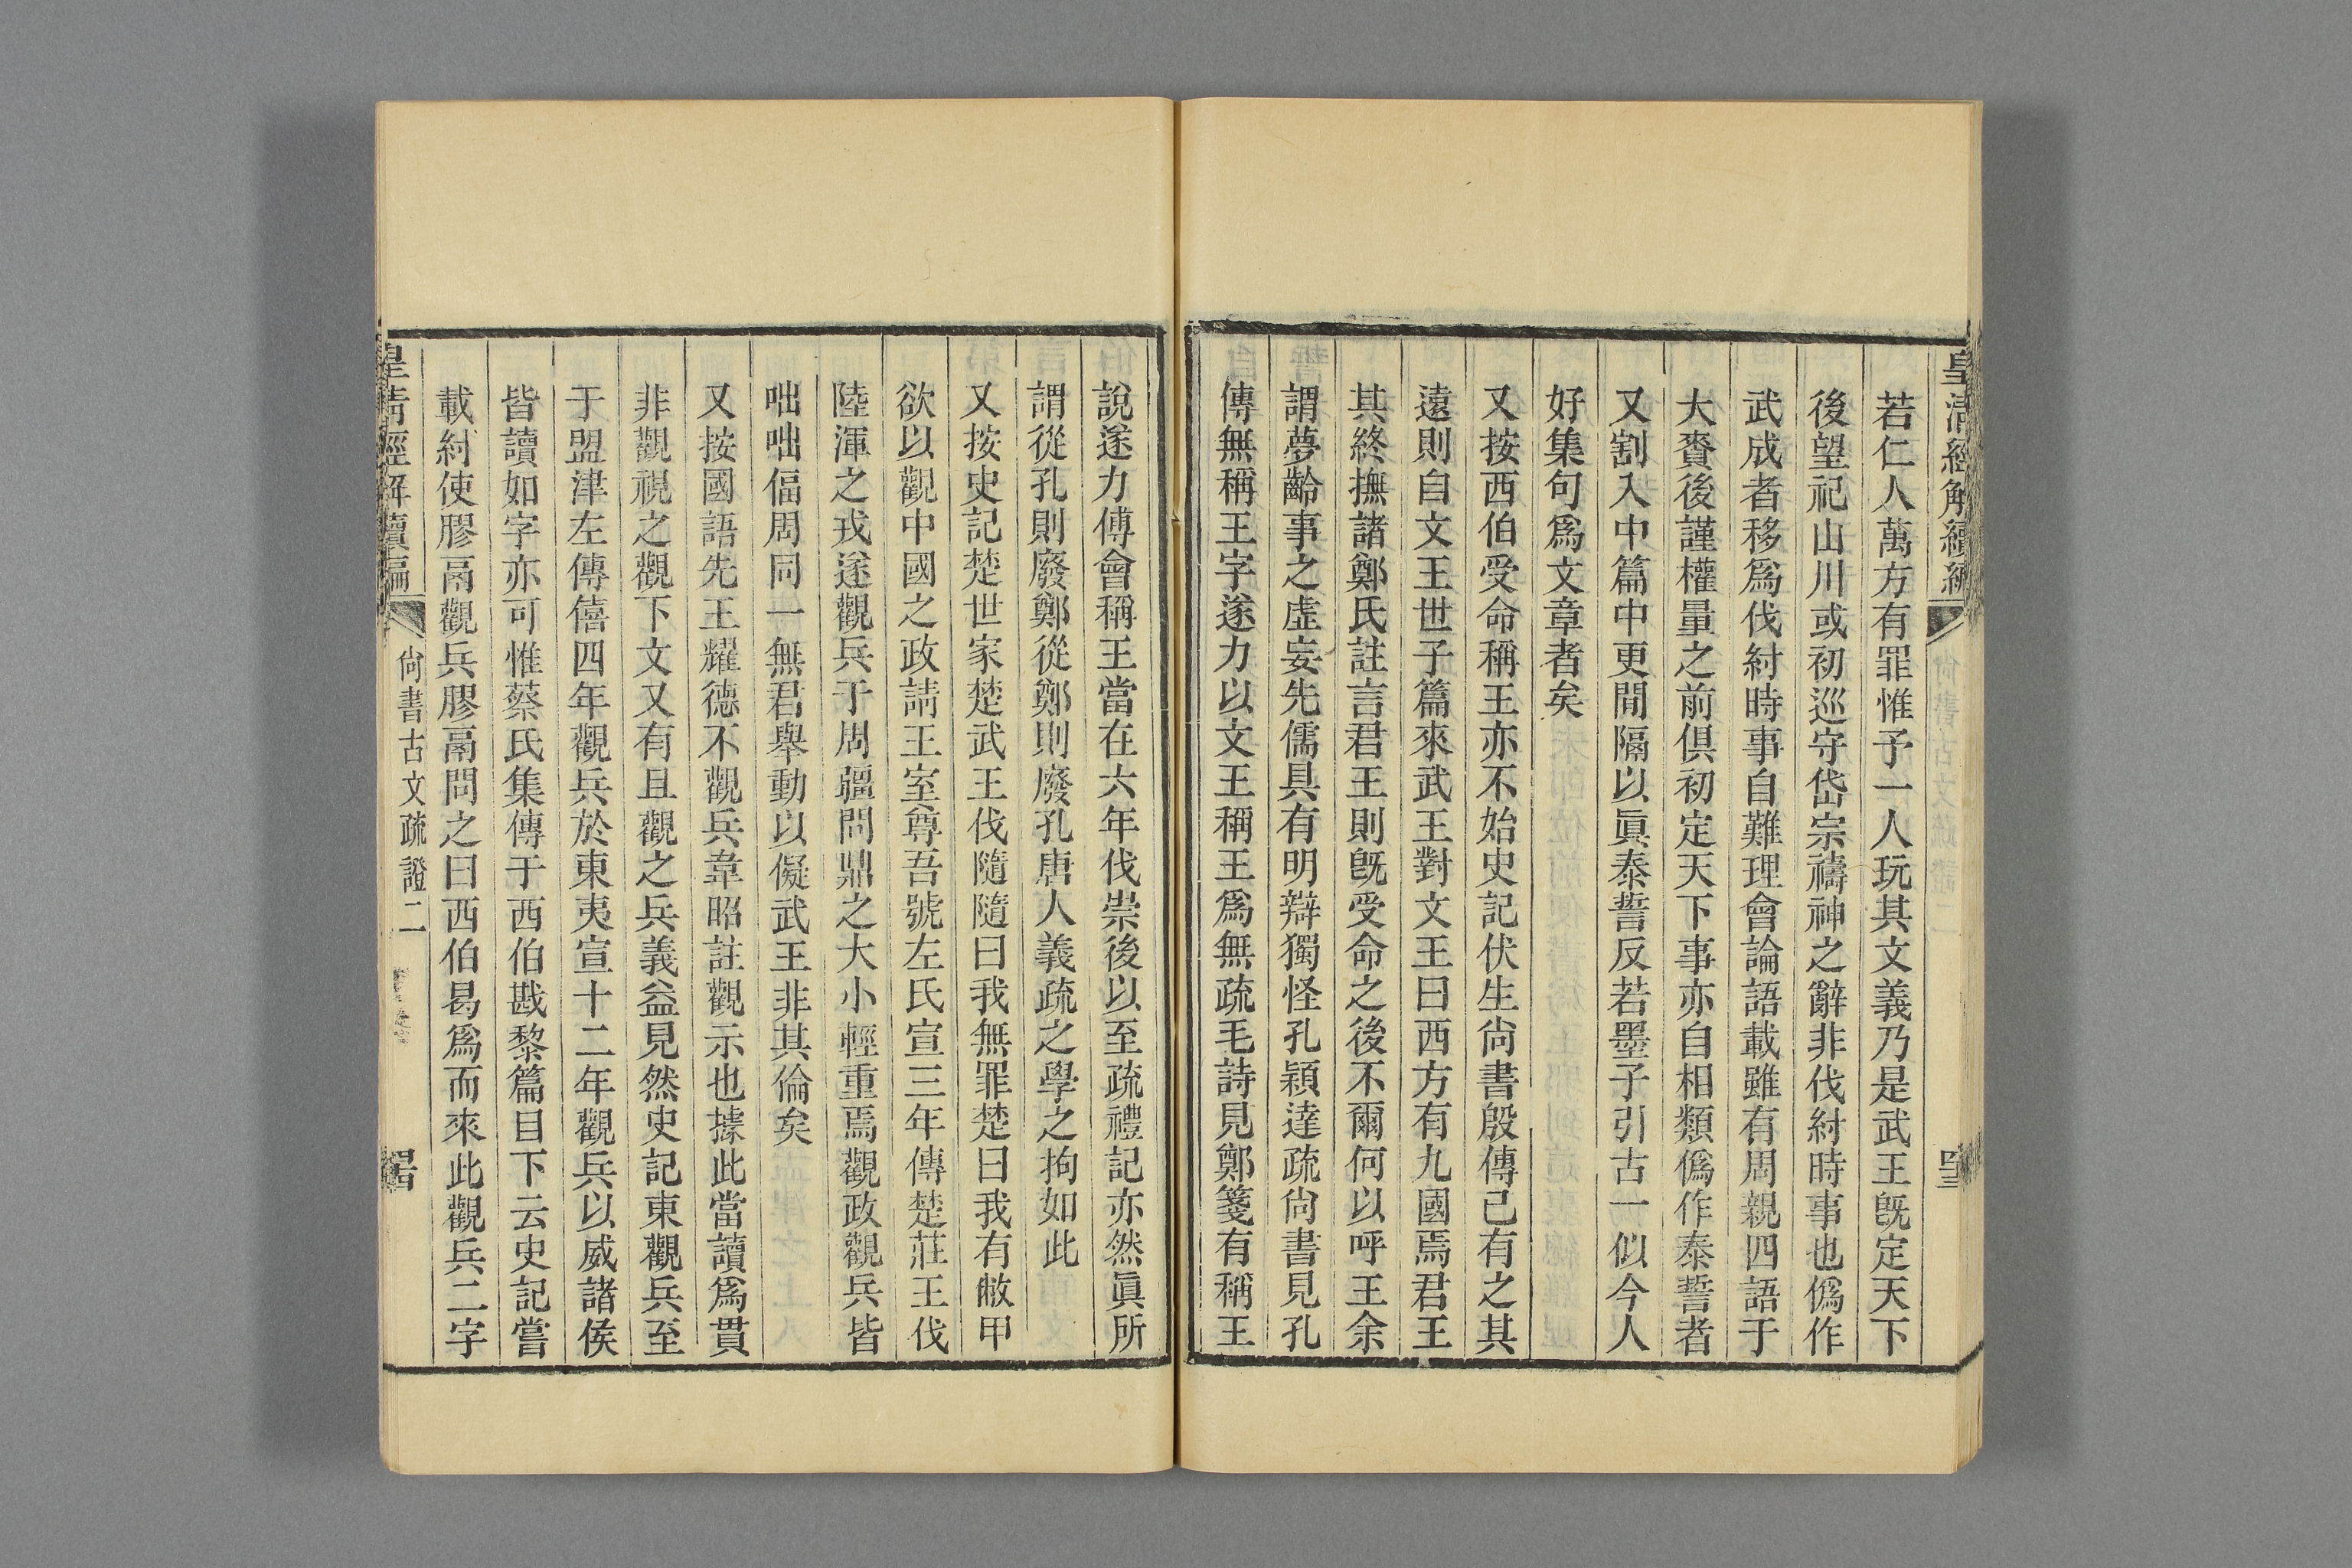 皇清經解續編
若仁人萬方有罪惟予一人玩其文義乃是武王旣定天下
後望祀山川或初巡守岱宗禱神之辭非伐紂時事也僞作
武成者移爲伐紂時事自難理會論語載雖有周親四語于
大賚後謹權量之前俱初定天下事亦自相類僞作泰誓者
又割入中篇中更閒隔以眞泰誓反若墨子引古一似今人
好集句爲文章者矣
又按西伯受命稱王亦不始史記伏生尙書殷傳己有之其
遠則自文王世子篇來武王對文王曰西方有九國焉君王
其終撫諸鄭氏註言君王則旣受命之後不爾何以呼王余
謂夢齡事之虛妄先儒具有明辯獨怪孔穎達疏尙書見孔
傳無稱王字遂力以文王稱王爲無疏毛詩見鄭箋有稱王
說遂力傅會稱王當在六年伐崇後以至疏禮記亦然眞所
謂從孔則廢鄭從鄭則廢孔唐人義疏之學之拘如此
又按史記楚世家楚武王伐隨隨曰我無罪楚曰我有敝甲
欲以觀中國之政請王室尊吾號左氏宣三年傳楚莊王伐
陸渾之戎遂觀兵于周疆問鼎之大小輕重焉觀政觀兵皆
咄咄偪周同一無君舉動以儗武王非其倫矣
又按國語先王耀德不觀兵韋昭註觀示也據此當讀爲貫
非觀視之觀下文又有且觀之兵義益見然史記東觀兵至
于盟津左傳僖四年觀兵於東夷宣十二年觀兵以威諸侯
皆讀如字亦可惟蔡氏集傳于西伯戡黎篇目下云史記嘗
載紂使膠鬲觀兵膠鬲問之曰西伯曷爲而來此觀兵二字
皇清經解續編
尙書古文疏證二